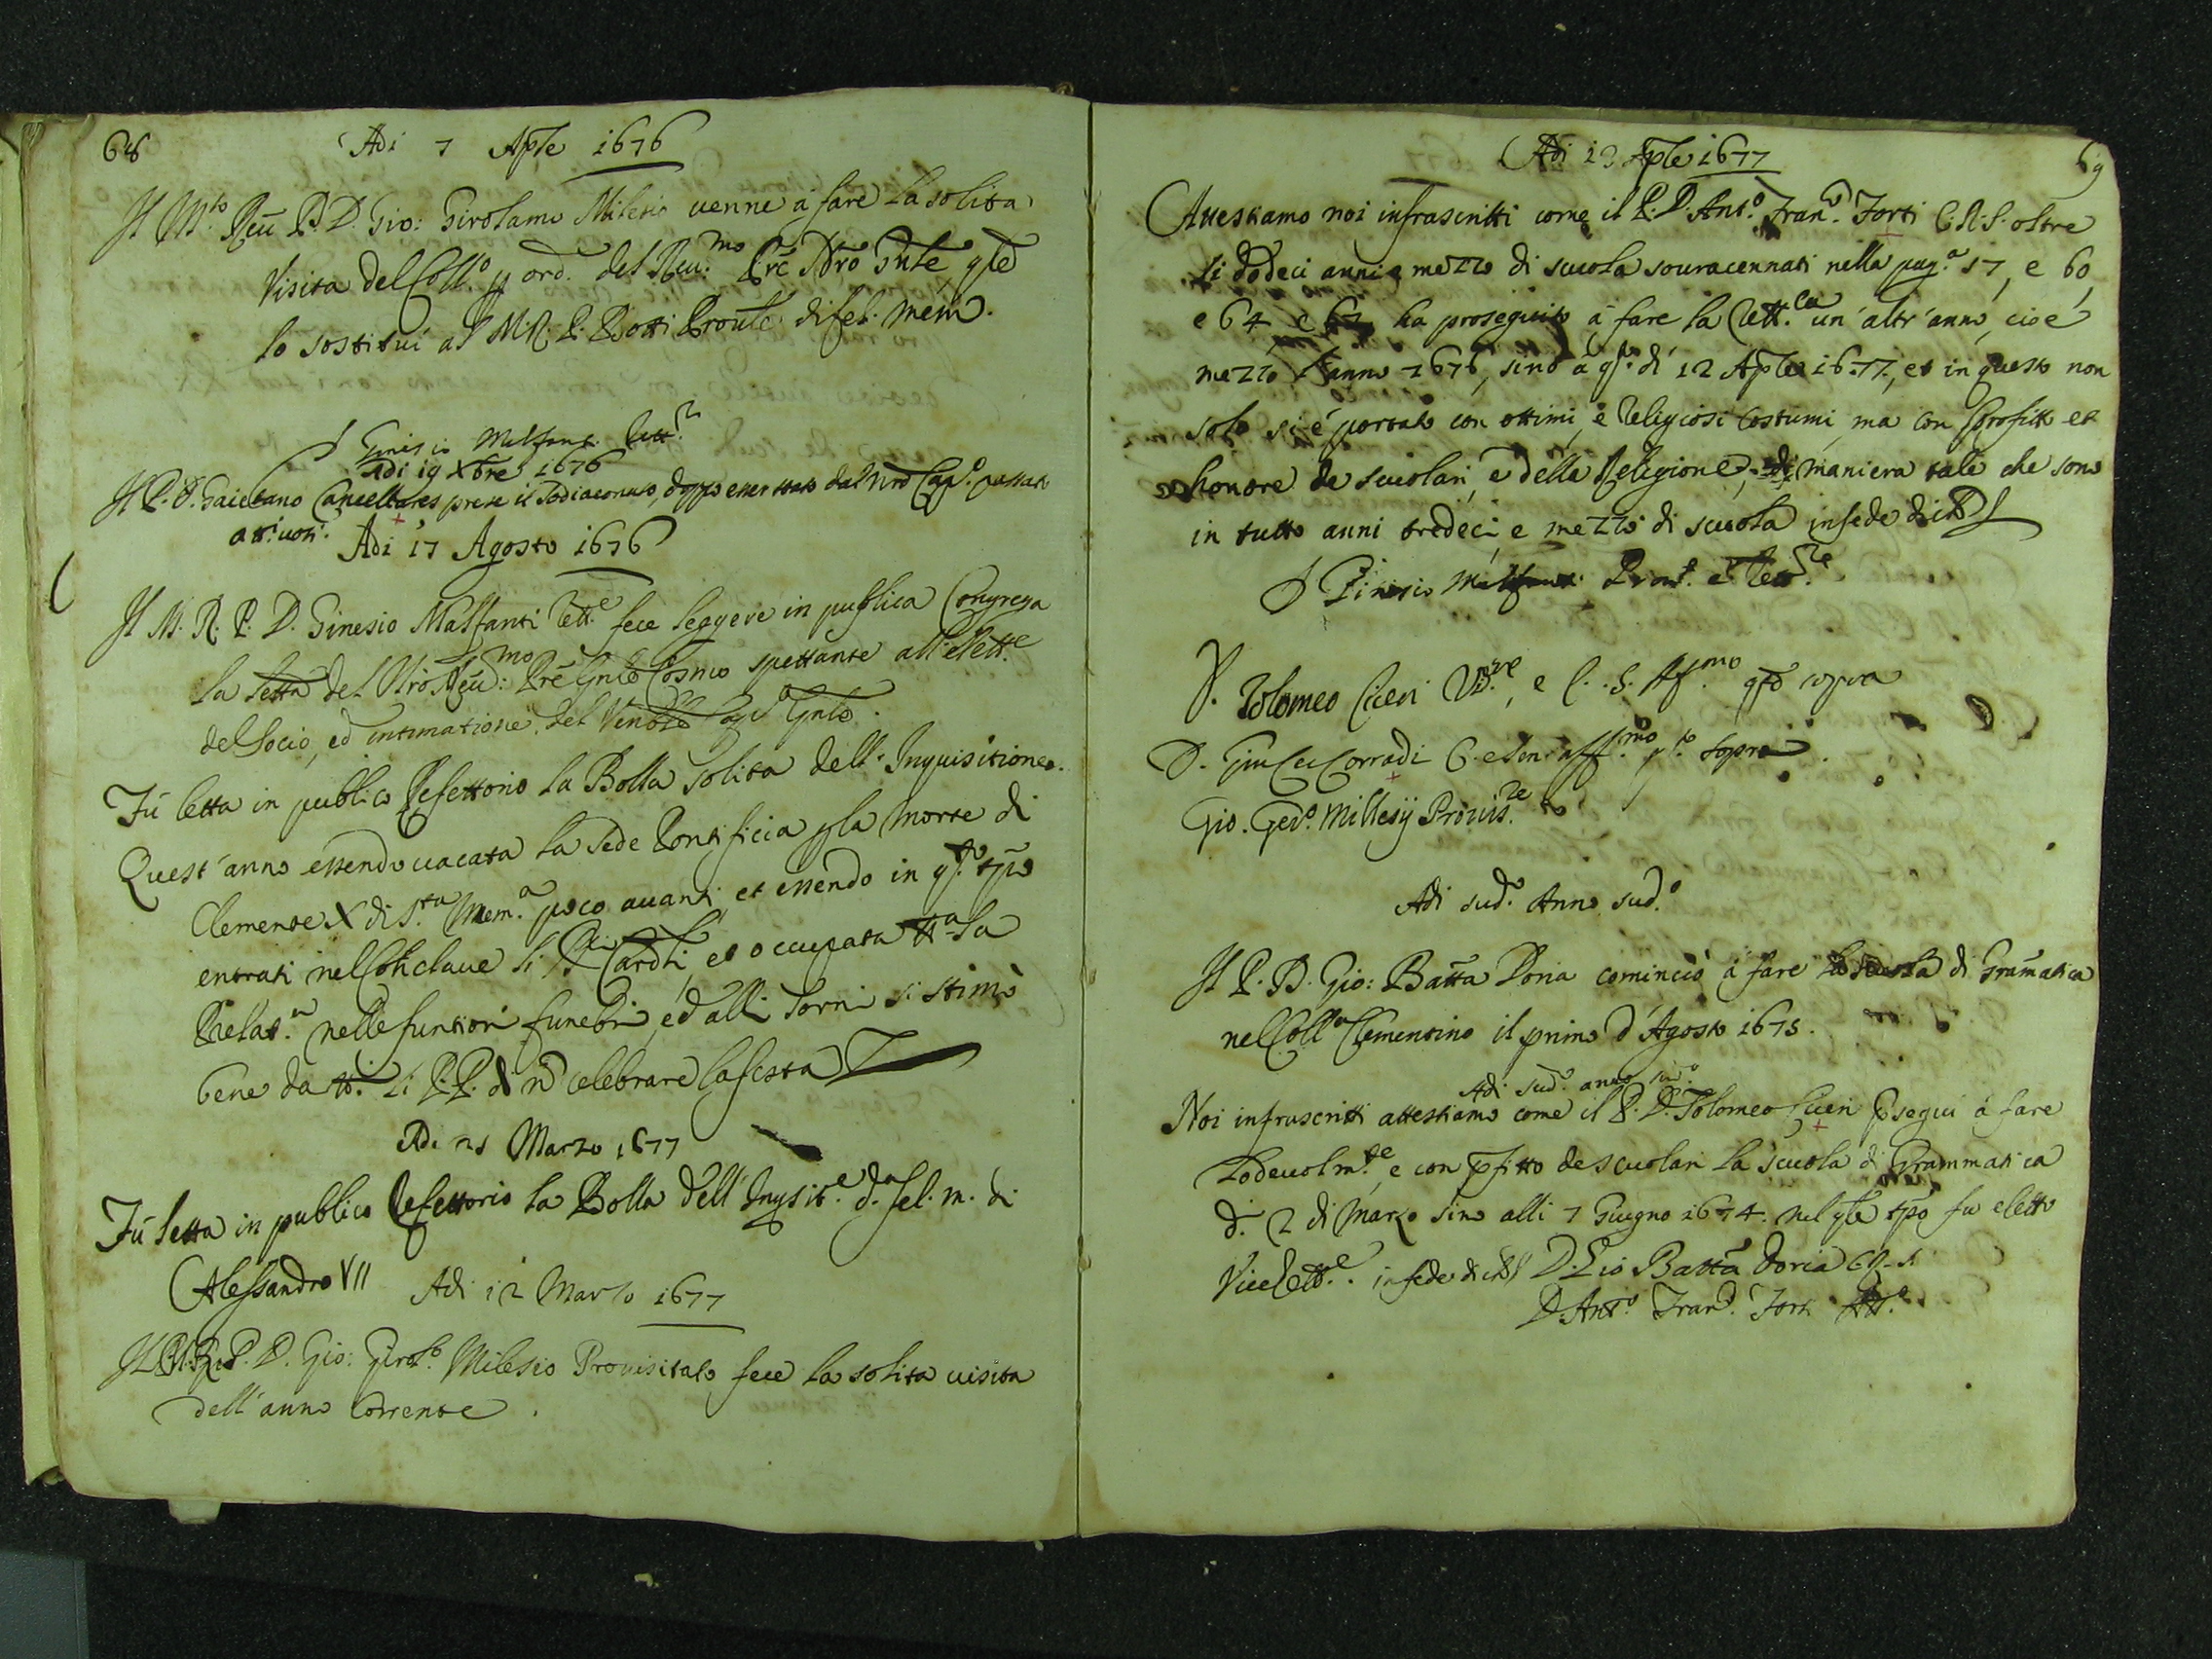 68
Adi 7 Aple 1676
Il M.to Reu P. D. Gio: Girolamo Milesio uenne à fare la solita
Visita del Coll.o p ord. del Reu.mo Pre Nro Gnle, qle
lo sostituì al M. R. P. Proule di fel. mem.
D Ginesio Malfanti Rett.re
Adi 19 Xbre 1676
Il P. D. Gaietano Cancellares prese il Sodiaconato, doppo esser stato dal nro Cap.o passato
a uoti.
Adi 17 Agosto 1676
Il M. R. P. D. Ginesio Malfanti Rett.e fece leggere in publica Congrega
la lettà del Nro Reu.mo Pre Gnle Cosmo spettante all'elett.e
del Socio, ed intimatione del Ven Cap.o Gnle.
Fù letta in publico Refettorio la Bolla solita dell'Inquisitione.
Quest'anno essendo uacata la Sede Pontificia p la morte di
Clemente X di S.ta Mem.a poco auanti, et essendo in q.to tpo
entrati nel Conclaue li Cardli, et occupata tt.a la
Prelat.a nelle funtioni funebri, ed alli Torni si stimò
bene da tt.i li P.P. di nò celebrare la festa
Adi 21 Marzo 1677
Fù letta in publico Refettorio la Bolla dell'Inqsit.e d.a fel. m. di
Alessandro VII
Adi 12 Marzo 1677
Il M.R.P. D. Gio: Girol.o Milesio Prouisitato fece la solita uisita
dell'anno corrente.
69
Adi 12 Aple 1677
Attestiamo noi infrascritti come il P. D. Ant.o Fran.o Forti C.R.S. oltre
li dodeci anni e mezzo di scuola souracennati nella pag.a 57, e 60,
e 64 e 67 ha proseguito à fare la Rett.ca un'altr'anno, cioè
mezzo l'anno 1676, sino à q.o dì 12 Aple 1677, et in questo non
solo si è portato con ottimi, e religiosi costumi, ma con profitto et
honore de scuolari, e della Religione, di maniera tale che sono
in tutto anni tredeci, e mezzo di scuola in fede di chè
D Ginesio Malfanti Prou.le e Rett.re
D. Tolomeo Cueri e C. S. Aff.mo q.to sopra
D. Giu Corradi C. e Son aff.mo q.to sopra.
Gio. Ger.o Millesij Prouis.re
Adi sud.o Anno sud.o
Il P. D. Gio: Batta Doria cominciò à fare la scuola di Gramatica
nel Coll.o Clementino il primo d'Agosto 1675.
Adi sud.o anno sud.o
Noi infrascritti attestiamo come il P. D. Tolomeo Cueri psegui à fare
lodeuolm.te, e con pfitto de scuolari la scuola di Grammatica
d. 2 di Marzo sino alli 7 Giugno 1674. nel qle tpo fu eletto
ViceRett.e. in fede di chè D. Gio Batta Doria C.R.S.
D. Ant.o Fran.o Forti Att.o